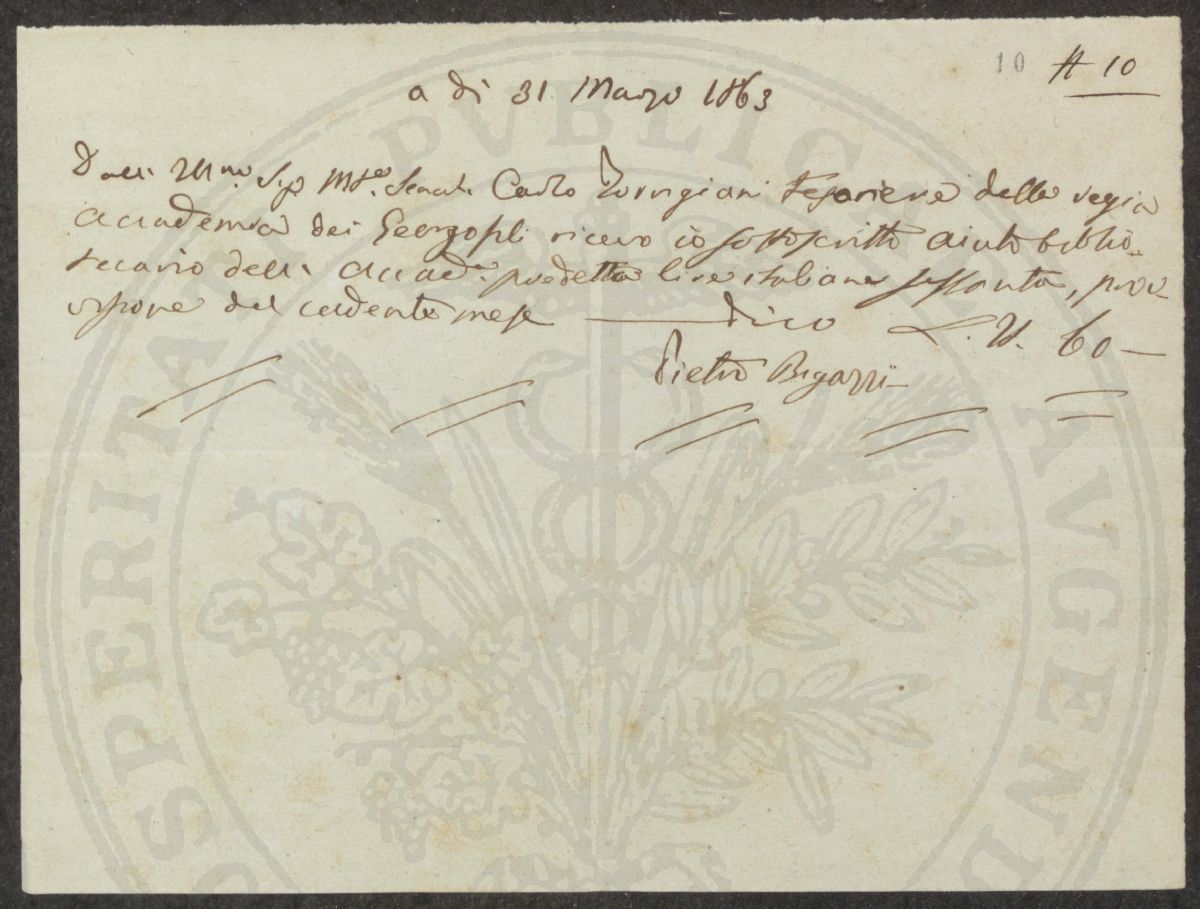 10 # 10
a dì 31 Marzo 1863
Dall' Ill.mo Sig. M.se Senat. Carlo Torrigiani Tesoriere della regia
Accademia dei Georgofili ricevo io sottoscritto aiuto biblio-
tecario dell' Accad.a predetta lire italiane sessanta, prov-
visione del cadente mese ——— dico L. It. 60 —
Pietro Bigazzi
PROSPERITATI PVBLICAE AVGENDAE